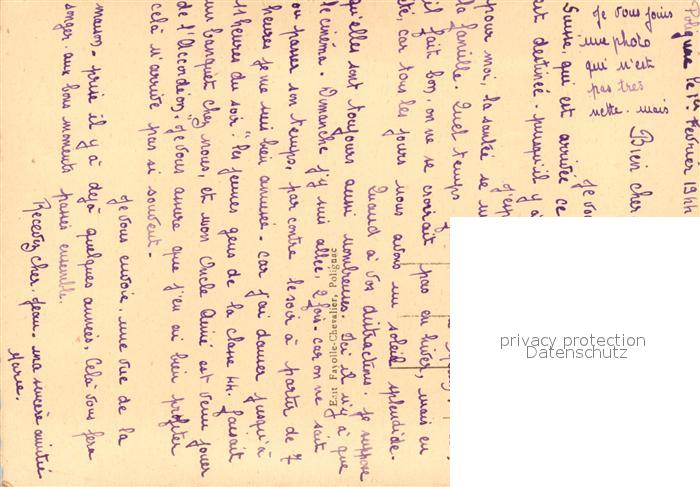 Polignac le 1er Février 1944
Je vous joins
une photo
qui n'est
pas tres
nette. mais
Bien cher
Suisse, qui est arrivée ce
est destinée. puisqu'il y a
Je vous
J'esp
pour moi, la santé se m
la famille. Quel temps
il fait bon. on ne se croirait pas en hiver, mais en
été, car tous les jours nous avons un soleil splendide.
Quand à vos distractions. je suppose
qu'elles sont toujours aussi nombreuses. Ici il n'y a que
le cinéma. Dimanche j'y suis allée, 2 fois. car on ne sait
ou passer son temps, par contre le soir à partir de 7
heures je me suis bien amusée. car j'ai danser jusqu'à
11 heures du soir. "les jeunes gens de la classe 44. faisait
un banquet chez nous, et mon Oncle Aimé est venu jouer
de l'Accordéon. Je vous assure que j'en ai bien profiter
celà n'arrive pas si souvent.
Je vous envoie, une vue de la
maison. prise il y a dejà quelques années. Celà vous fera
songer aux bons moments passés ensemble.
Recevez cher Jean. ma sincère amitié
Marie.
Edit Fayolle-Chevalier, Polignac
privacy protection
Datenschutz